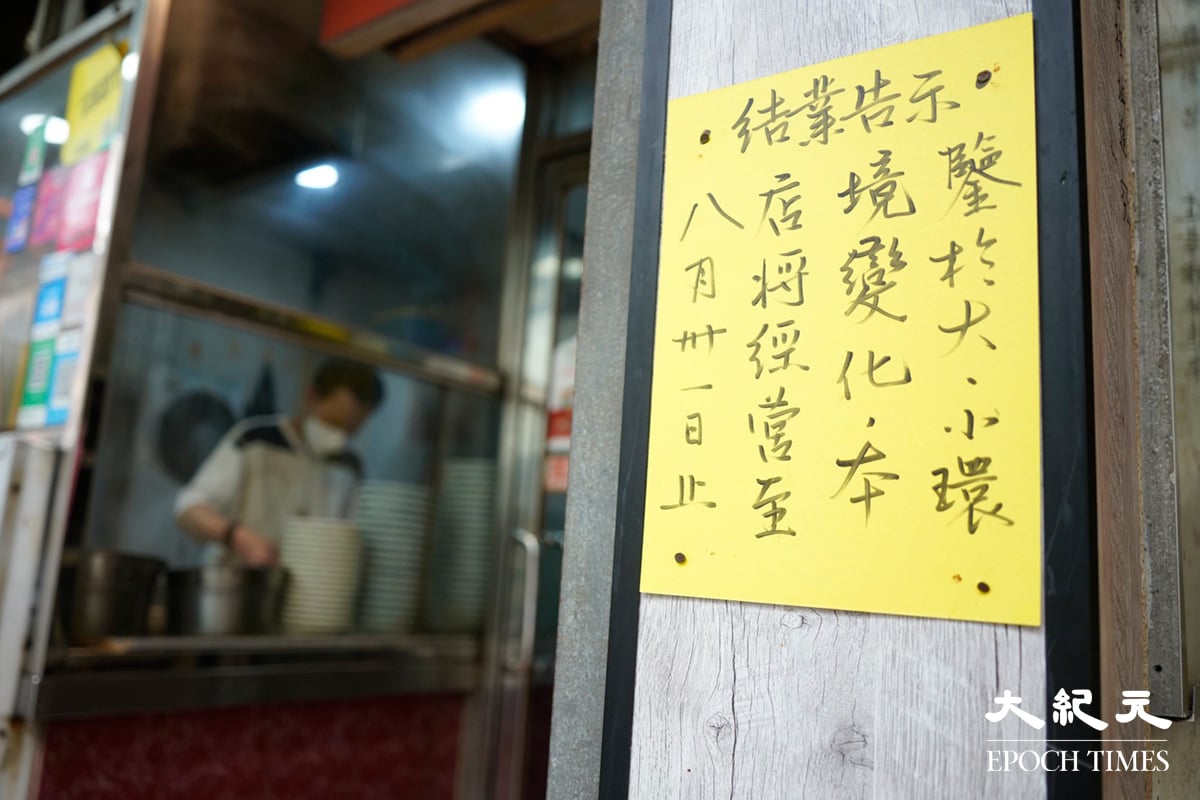 結業告示
鑒於大、小環
境變化，本
店將經營至
八月卅一日止
大紀元
EPOCH TIMES